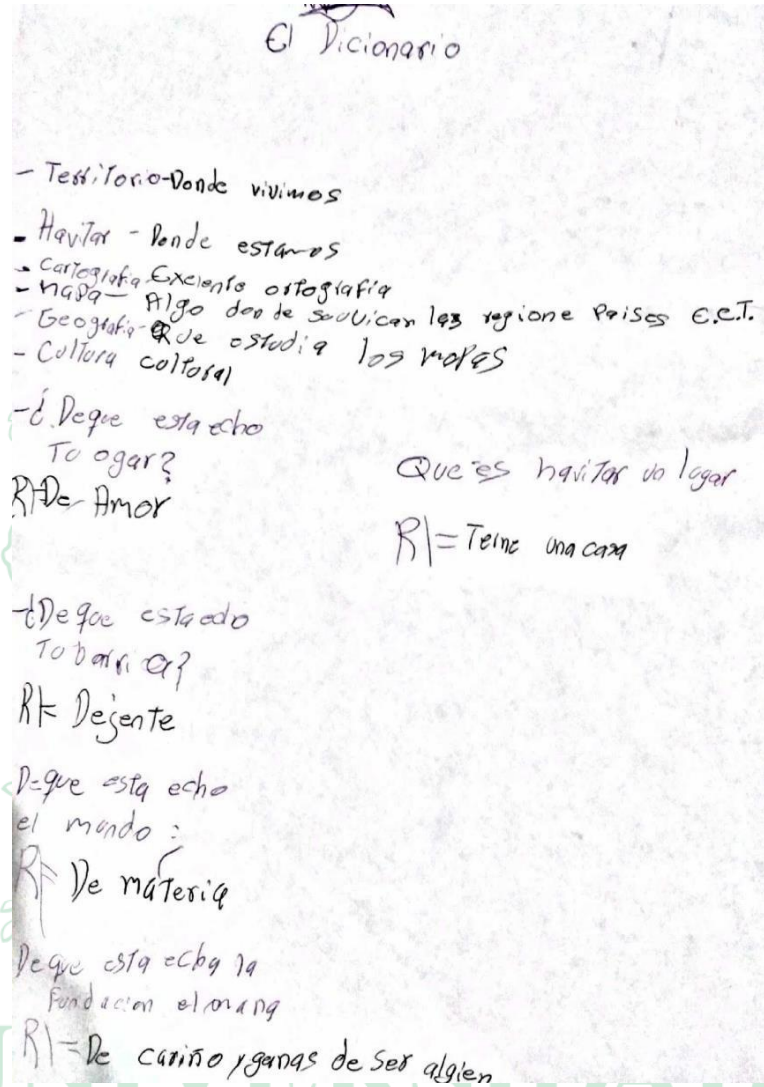 El Dicionario
- Territorio-Donde vivimos
- Havitar - Donde estamos
- Cartografia Exelente ortografia
- mapa- Algo donde se uvican las regione Paises E.C.T.
- Geografia- Que estudia los mapas
- Cultura cultoral
-¿Deque esta echo
Tu ogar?
R|=De Amor
Que es havitar un lugar
R|= Teine una casa
-¿De que esta edo
Tu barrio?
R|= Dejente
Deque esta echo
el mundo:
R|= De materia
Deque esta echa la
Fundacion el
R|=De cariño y ganas de ser algien